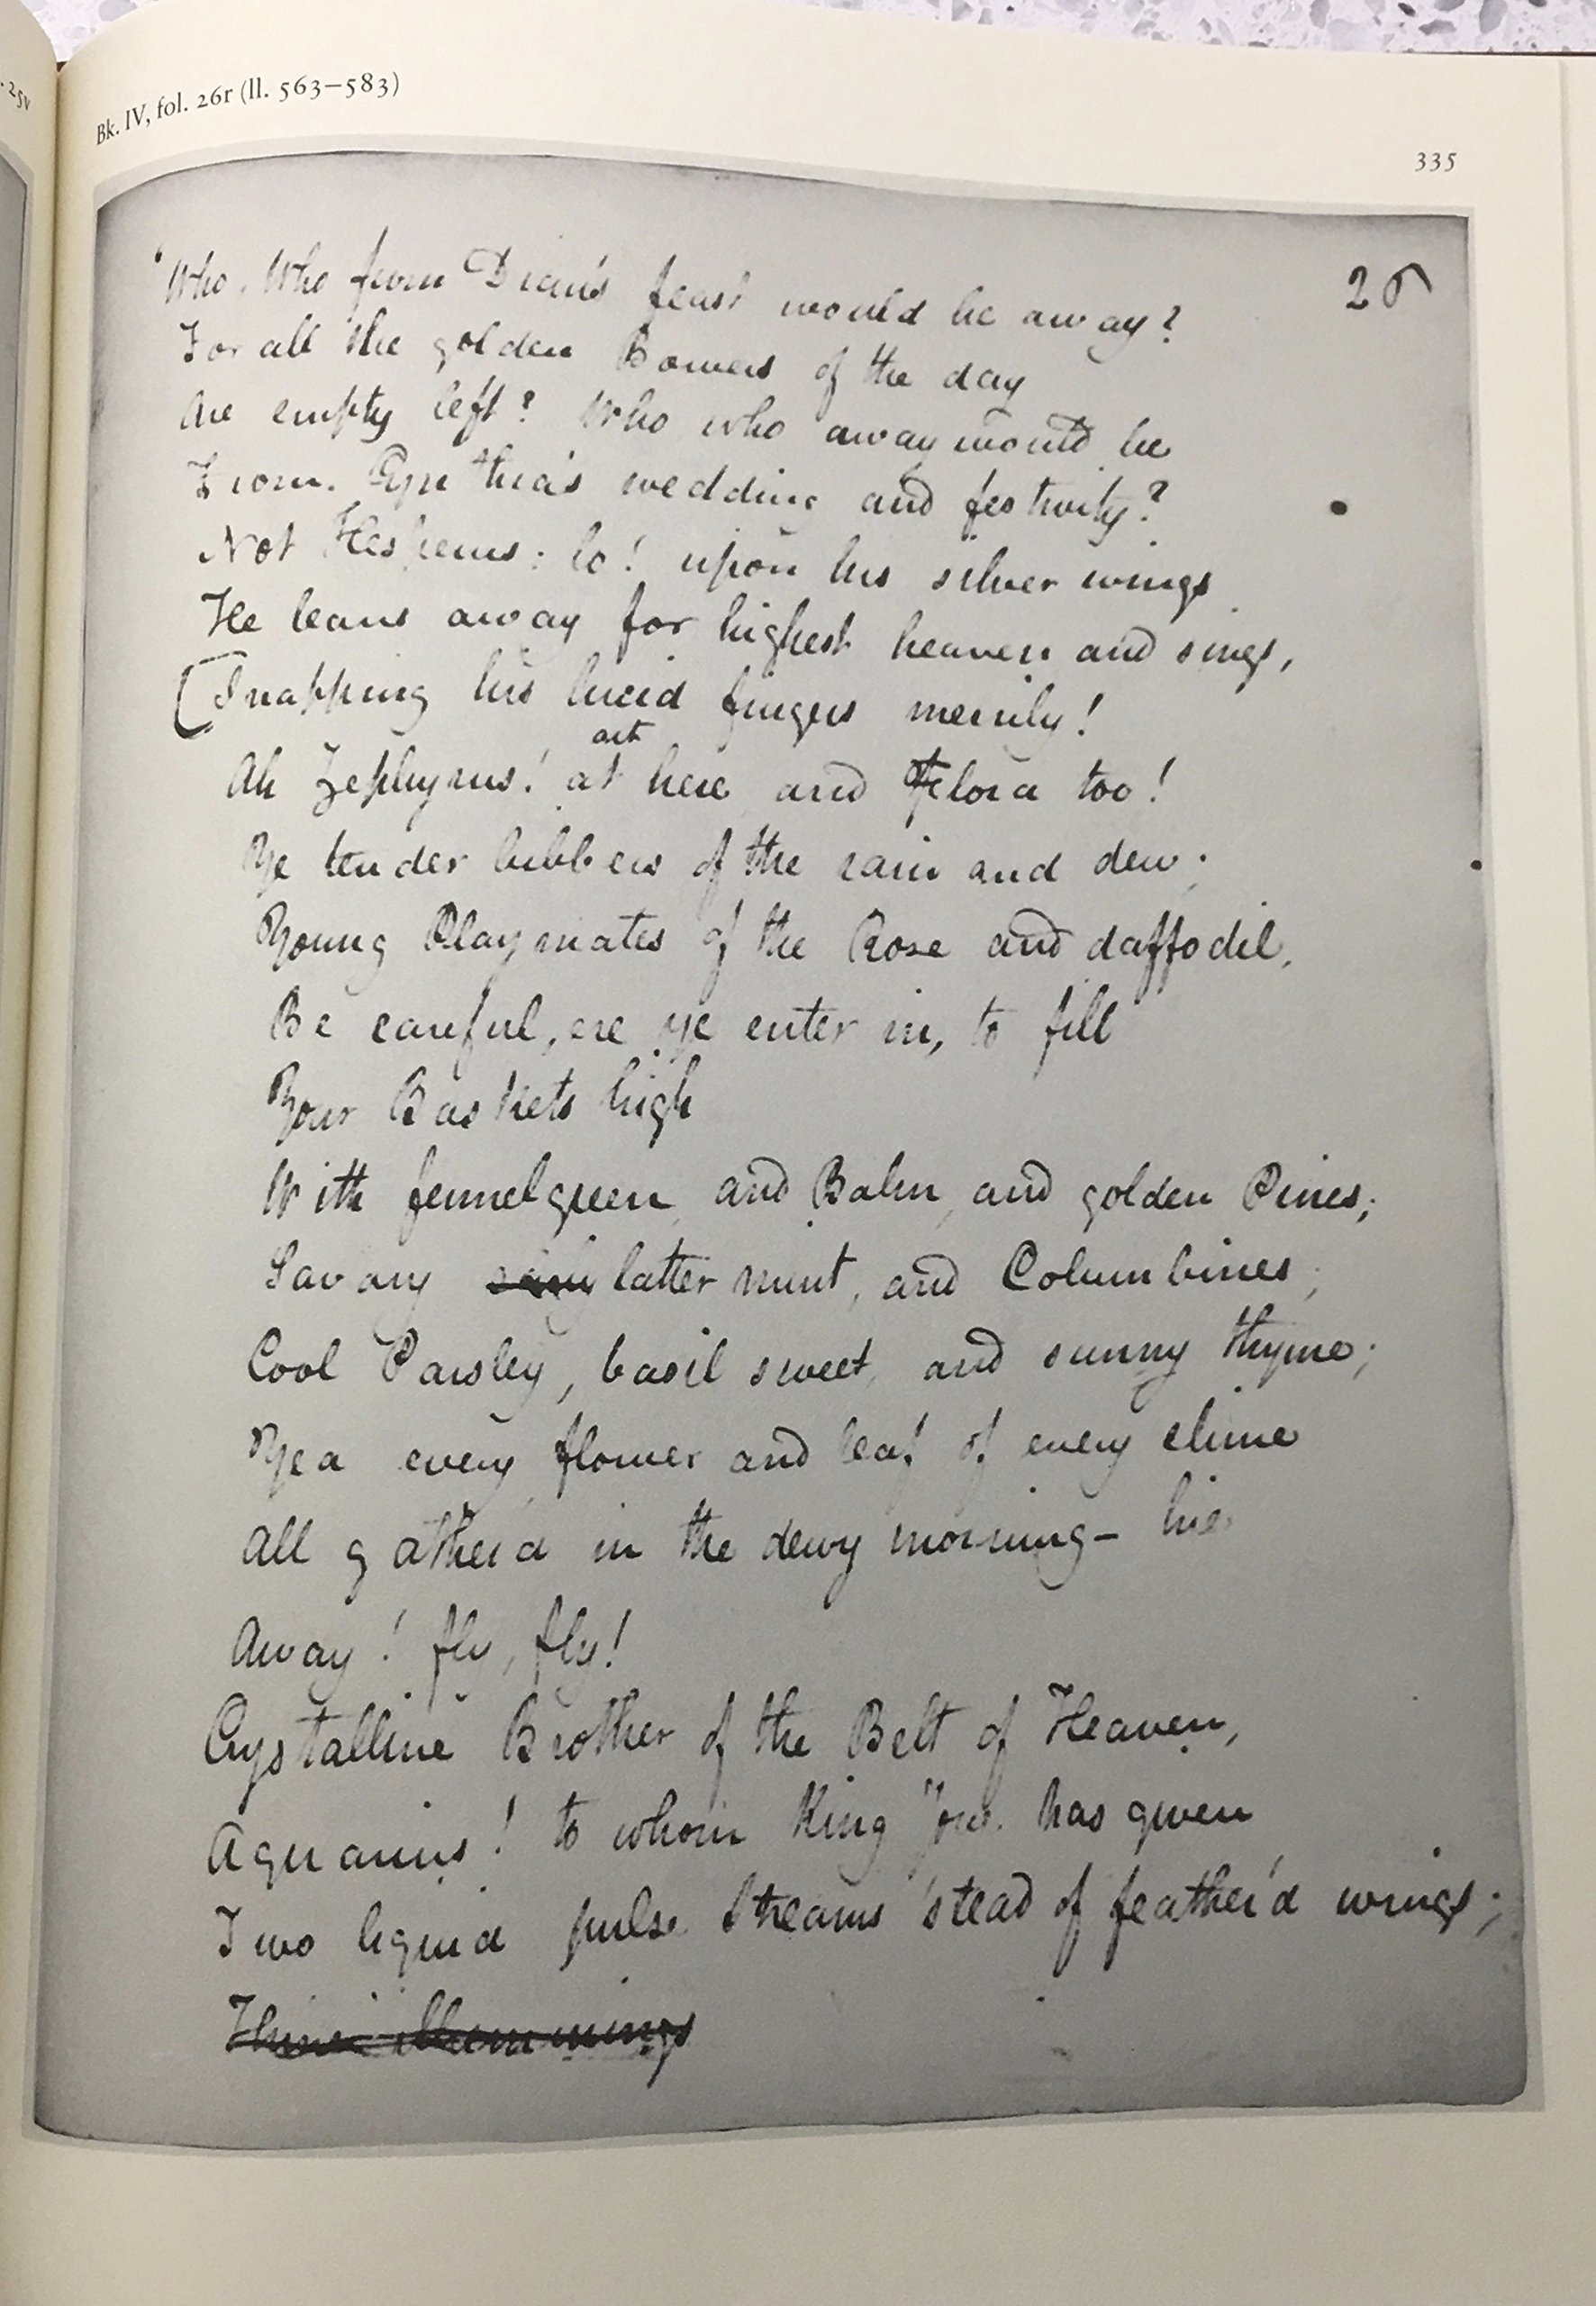 · 25v
Bk. IV, fol. 26r (ll. 563–583)
335
26
'Who, Who from Dian's feast would be away?
For all the golden Bowers of the day
Are empty left? Who who away would be
From Cynthia's wedding and festivity?
Not Hesperus: lo! upon his silver wings
He leans away for highest heaven and sings,
Snapping his lucid fingers merrily!
art
Ah Zephyrus! at here and Flora too!
Ye tender bibbers of the rain and dew;
Young Playmates of the Rose and daffodil,
Be careful, ere ye enter in, to fill
Your Baskets high
With fennel green, and Balm, and golden Pines;
Savory latter mint, and Columbines;
Cool Parsley, basil sweet, and sunny thyme;
Yea every flower and leaf of every clime
All gather'd in the dewy morning– hie
Away! fly, fly!
Crystalline Brother of the Belt of Heaven,
Aquarius! to whom King Jove has given
Two liquid pulse streams 'stead of feather'd wings;